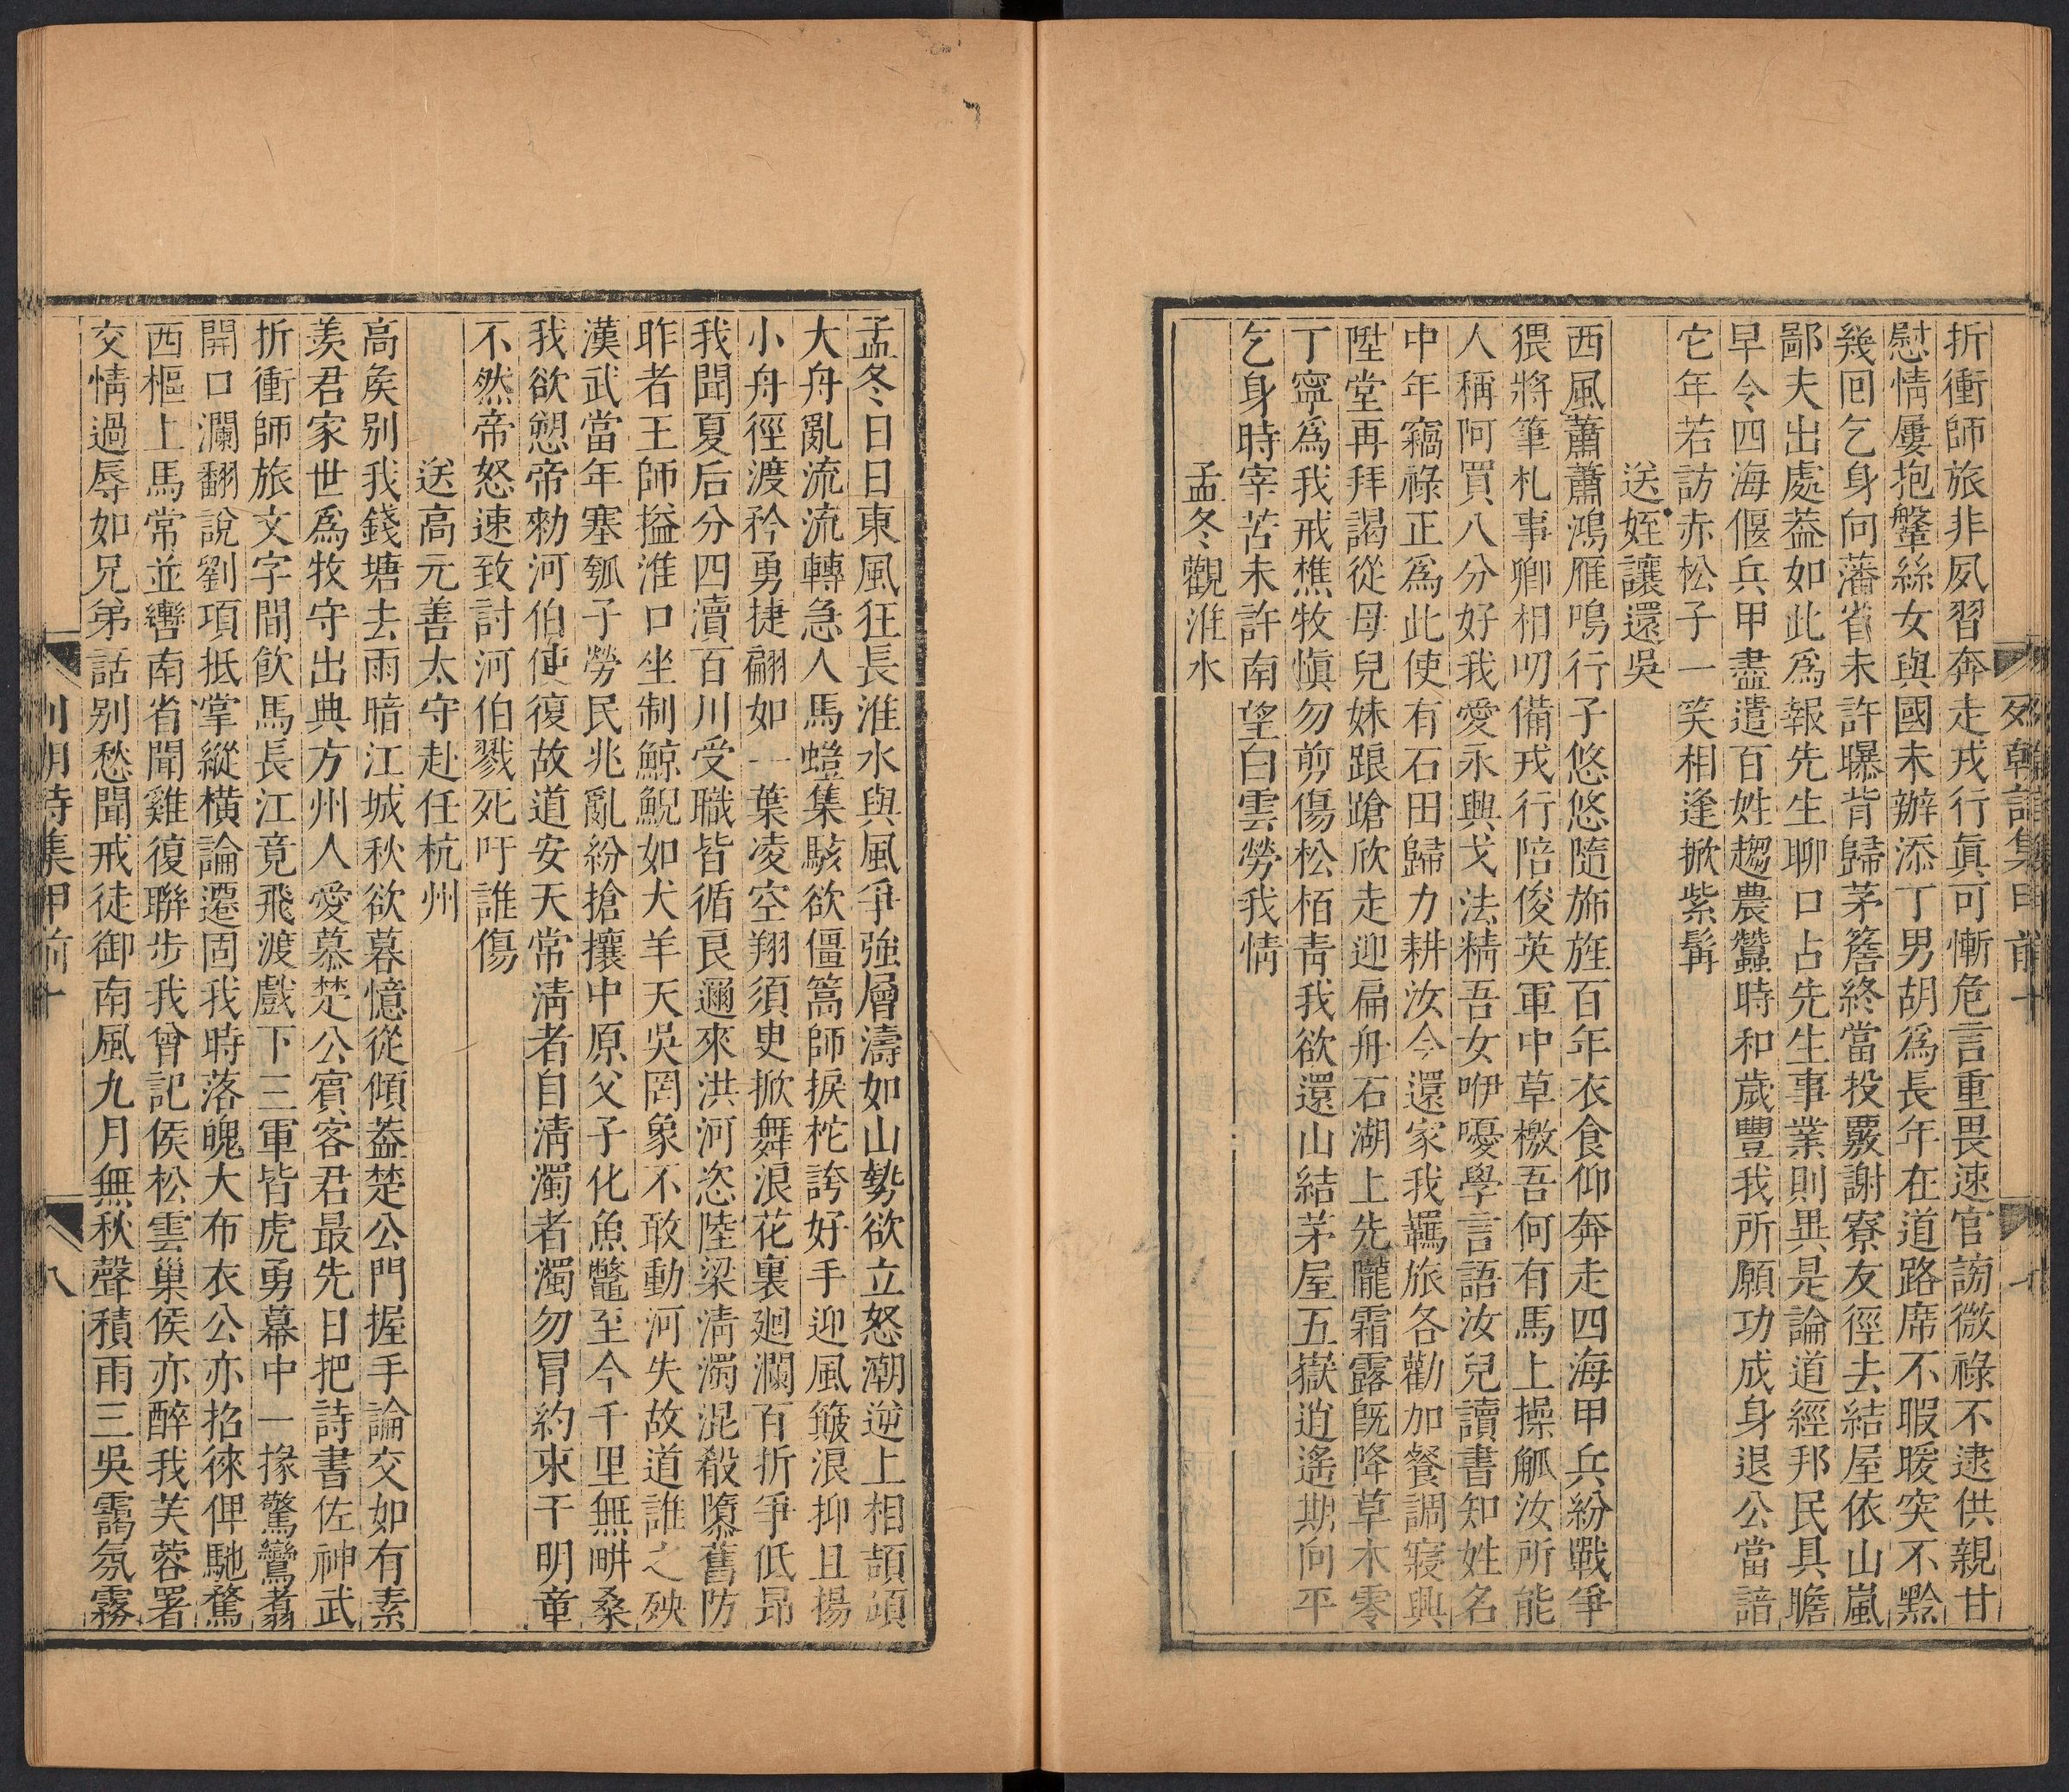 折衝師旅非夙習奔走戎行眞可慚危言重畏速官謗微祿不逮供親甘
慰情屢抱鞶絲女與國未辦添丁男胡爲長年在道路席不暇暖突不黔
幾囘乞身向藩省未許曝背歸茅簷終當投覈謝寮友徑去結屋依山嵐
鄙夫出處葢如此爲報先生聊口占先生事業則異是論道經邦民具瞻
早令四海偃兵甲盡遣百姓趨農蠶時和歲豐我所願功成身退公當諳
它年若訪赤松子一笑相逢掀紫髯
送姪讓還吳
西風蕭蕭鴻雁鳴行子悠悠隨斾旌百年衣食仰奔走四海甲兵紛戰爭
猥將筆札事卿相叨備戎行陪俊英軍中草檄吾何有馬上操觚汝所能
人稱阿買八分好我愛永興戈法精吾女咿嚘學言語汝兒讀書知姓名
中年竊祿正爲此使有石田歸力耕汝今還家我羈旅各勸加餐調寢興
陞堂再拜謁從母兒妹踉蹌欣走迎扁舟石湖上先隴霜露旣降草木零
丁寧爲我戒樵牧愼勿剪傷松栢靑我欲還山結茅屋五嶽逍遙期向平
乞身時宰苦未許南望白雲勞我情
孟冬觀淮水
孟冬日日東風狂長淮水與風爭強層濤如山勢欲立怒潮逆上相頡頏
大舟亂流流轉急人馬螘集駭欲僵篙師捩柁誇好手迎風簸浪抑且揚
小舟徑渡矜勇捷翩如一葉凌空翔須臾掀舞浪花裏廻瀾百折爭低昂
我聞夏后分四瀆百川受職皆循良邇來洪河恣陸梁淸濁混殽隳舊防
昨者王師搤淮口坐制鯨鯢如犬羊天吳罔象不敢動河失故道誰之殃
漢武當年塞瓠子勞民兆亂紛搶攘中原父子化魚鼈至今千里無畊桑
我欲愬帝勑河伯使復故道安天常淸者自淸濁者濁勿冒約束干明章
不然帝怒速致討河伯戮死吁誰傷
送高元善太守赴任杭州
高矦别我錢塘去雨暗江城秋欲暮憶從傾葢楚公門握手論交如有素
羨君家世爲牧守出典方州人愛慕楚公賓客君最先日把詩書佐神武
折衝師旅文字間飲馬長江竟飛渡戲下三軍皆虎勇幕中一掾驚鸞翥
開口瀾翻說劉項抵掌縱橫論遷固我時落魄大布衣公亦招徠俾馳騖
西樞上馬常並轡南省聞雞復聯步我曾記侯松雲巢侯亦醉我芙蓉署
交情過辱如兄弟話别愁聞戒徒御南風九月無秋聲積雨三吳靄氛霧
八